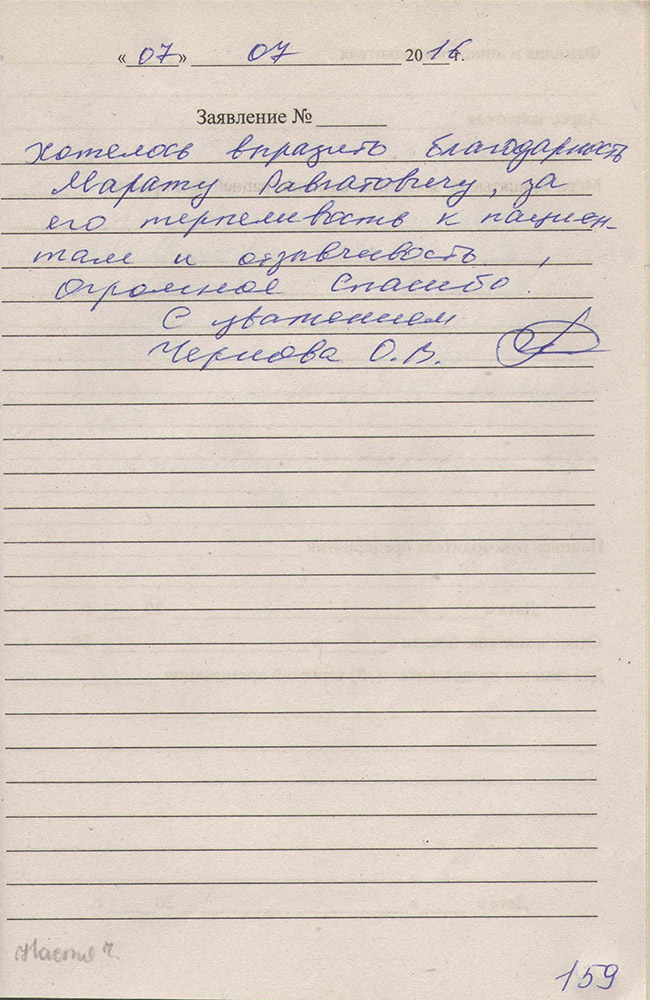 «07» 07 2016 г.
Заявление №
Хотелось выразить благодарность
Марату Равгатовичу, за
его терпеливость к пациен-
там и отзывчивость,
Огромное Спасибо!
С уважением
Чернова О.В.
159